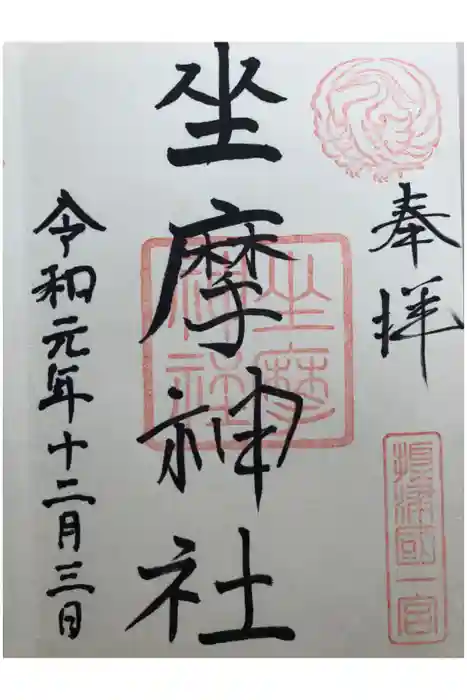 奉拝
摂津國一宮
坐摩神社
坐摩
神社
令和元年十二月三日